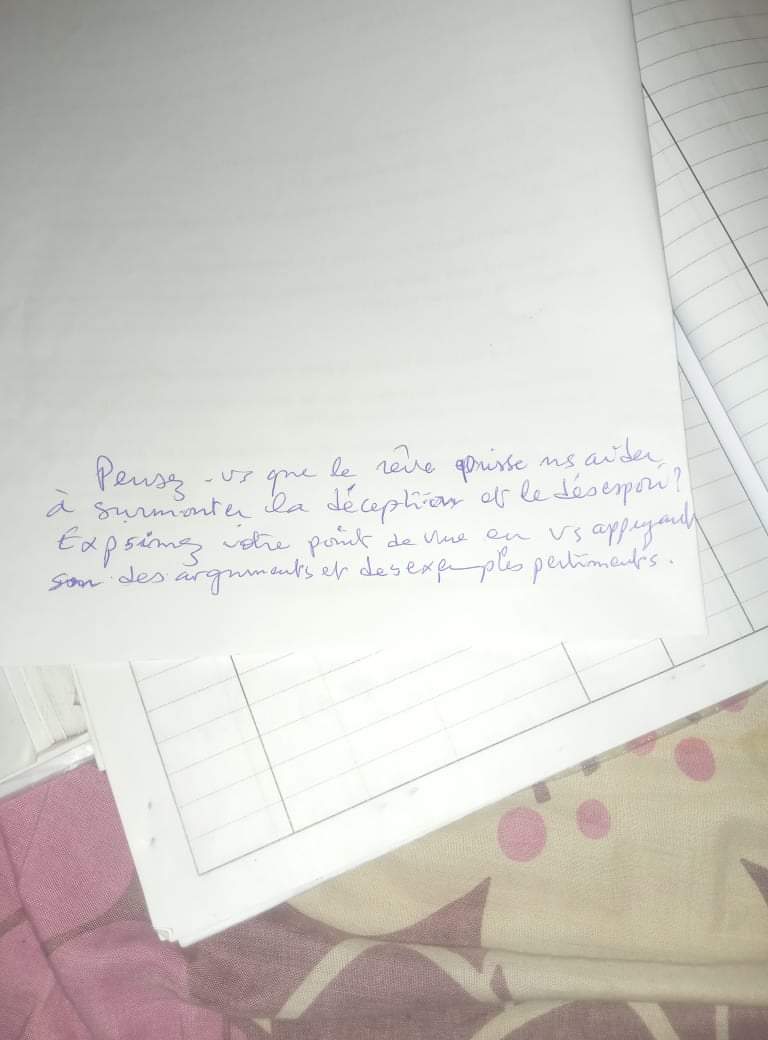 Pensez-vs que le rêve puisse ns aider
à surmonter la déception et le désespoir?
Exprimez votre point de vue en vs appuyant
sur des arguments et des exemples pertinents.